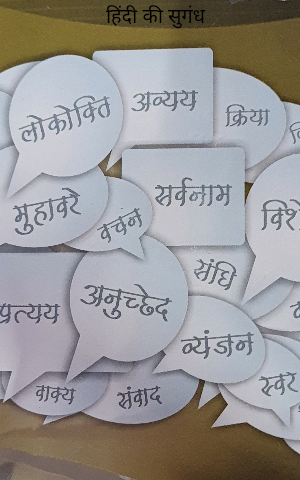 हिंदी की सुगंध
लोकोक्ति
अव्यय
क्रिया
मुहावरे
वचन
सर्वनाम
विशे
संधि
प्रत्यय
अनुच्छेद
व्यंजन
स्वर
वाक्य
संवाद